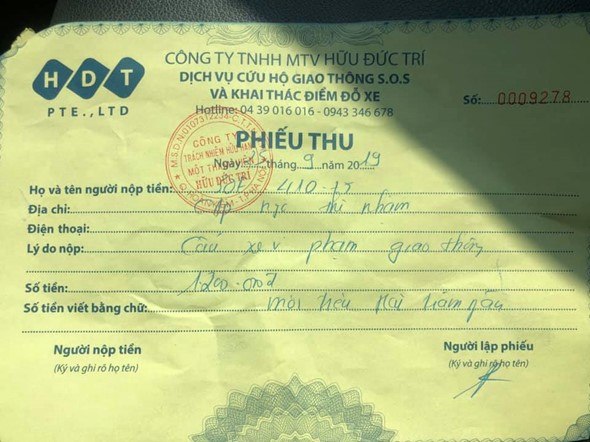 HDT
PTE.,LTD
CÔNG TY TNHH MTV HỮU ĐỨC TRÍ
DỊCH VỤ CỨU HỘ GIAO THÔNG S.O.S
VÀ KHAI THÁC ĐIỂM ĐỖ XE
Hotline: 04 39 016 016 - 0943 346 678
Số: 0009278
PHIẾU THU
CÔNG TY
TRÁCH NHIỆM HỮU HẠN
MỘT THÀNH VIÊN
HỮU ĐỨC TRÍ
Ngày 25 tháng 9 năm 2019
Họ và tên người nộp tiền: 410.15
Địa chỉ:
Điện thoại:
Lý do nộp: Cẩu xe vi phạm giao thông
Số tiền: 1200.000đ
Số tiền viết bằng chữ: Một triệu hai trăm
Người nộp tiền
(Ký và ghi rõ họ tên)
Người lập phiếu
(Ký và ghi rõ họ tên)